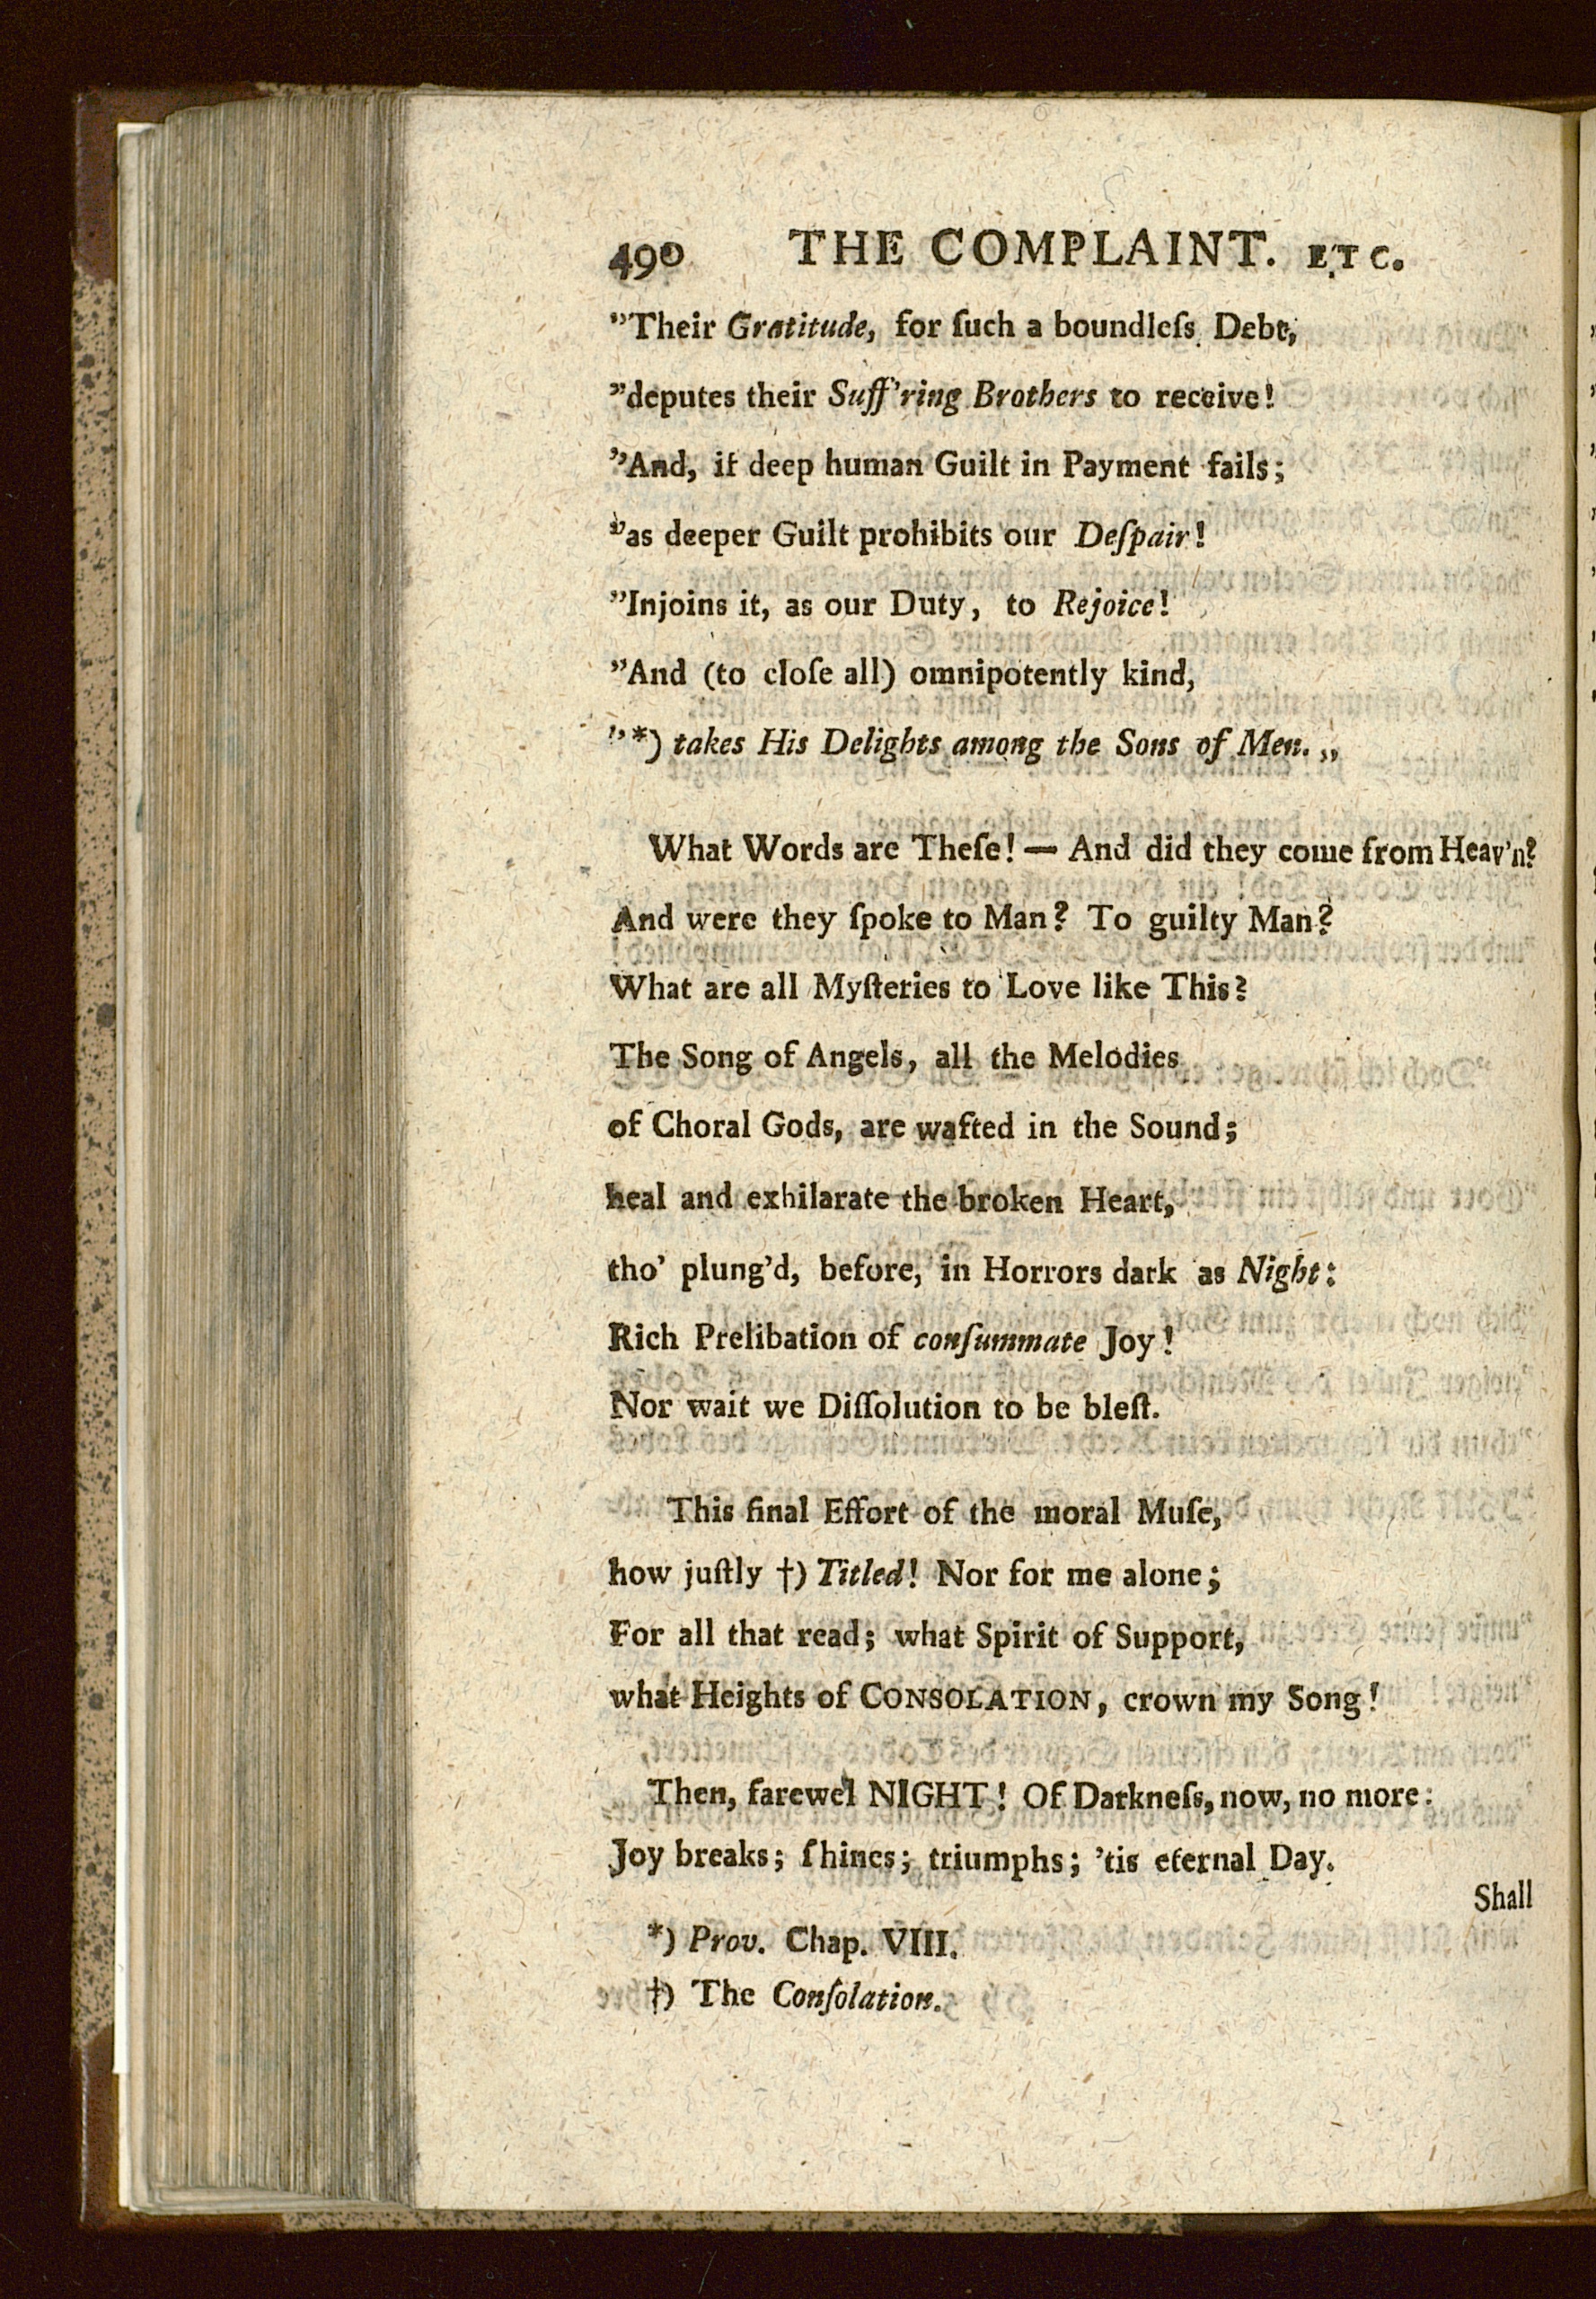 490 THE COMPLAINT. ETC.
"Their Gratitude, for ſuch a boundleſs Debt,
"deputes their Suff'ring Brothers to receive!
"And, if deep human Guilt in Payment fails;
"as deeper Guilt prohibits our Deſpair!
"Injoins it, as our Duty, to Rejoice!
"And (to cloſe all) omnipotently kind,
"*) takes His Delights among the Sons of Men.„
What Words are Theſe! — And did they come from Heav'n?
And were they ſpoke to Man? To guilty Man?
What are all Myſteries to Love like This?
The Song of Angels, all the Melodies
of Choral Gods, are wafted in the Sound;
heal and exhilarate the broken Heart,
tho' plung'd, before, in Horrors dark as Night:
Rich Prelibation of conſummate Joy!
Nor wait we Diſſolution to be bleſt.
This final Effort of the moral Muſe,
how juſtly †) Titled! Nor for me alone;
For all that read; what Spirit of Support,
what Heights of CONSOLATION, crown my Song!
Then, farewel NIGHT! Of Darkneſs, now, no more:
Joy breaks; ſhines; triumphs; 'tis eternal Day.
Shall
*) Prov. Chap. VIII.
†) The Conſolation.